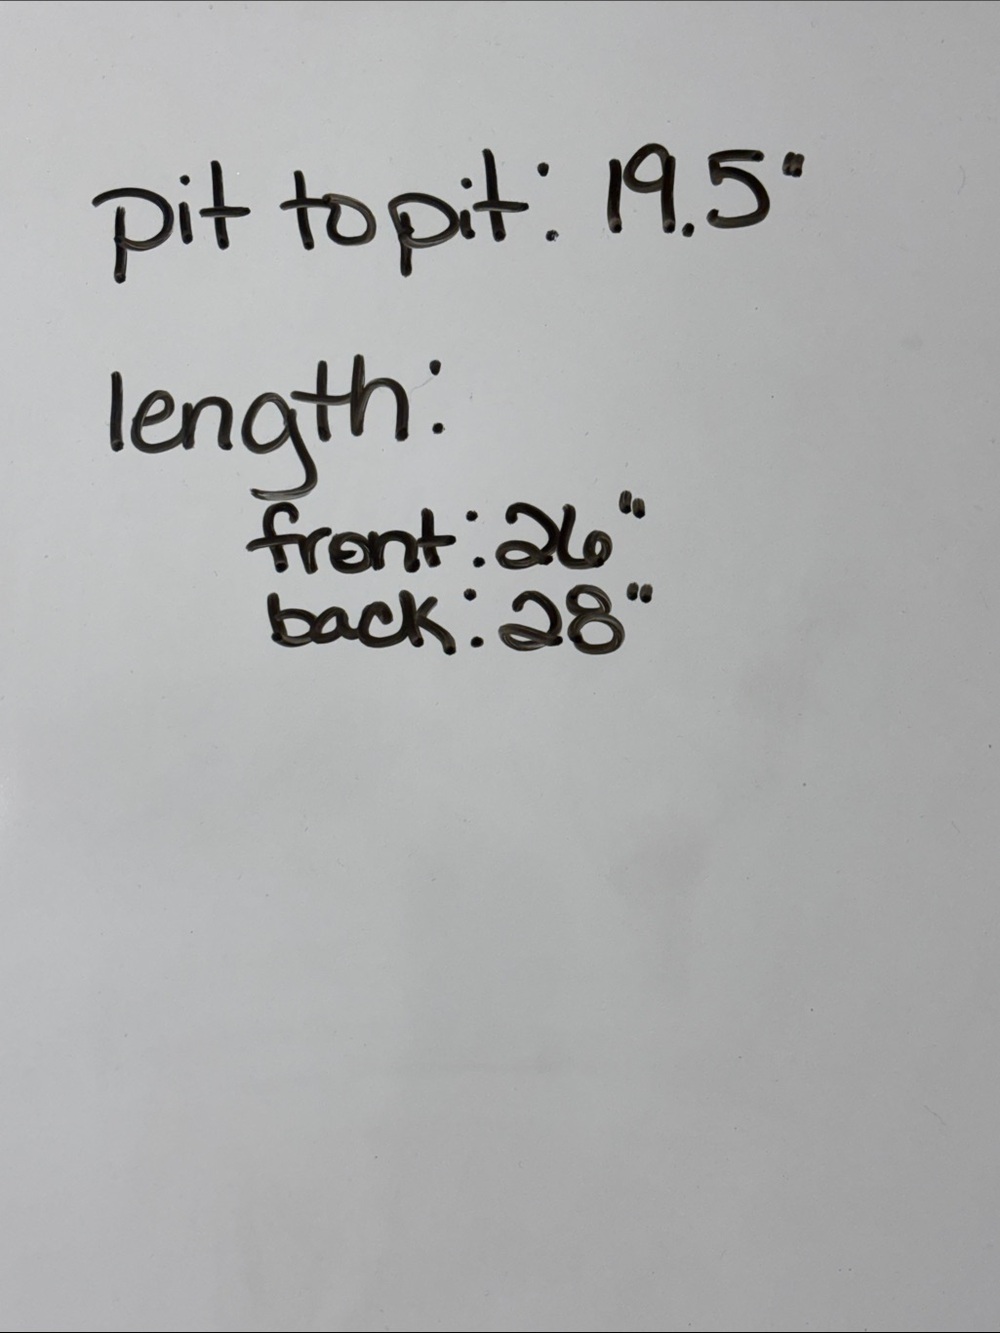 pit to pit: 19.5"
length:
front: 26"
back: 28"